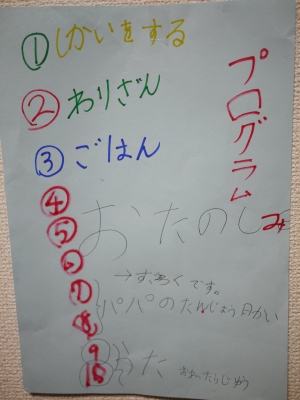 プログラム
①しかいをする
②わりざん
③ごはん
④
⑤
おたのしみ
⑥
→すごろくです。
⑦
パパのたんじょう日かい
⑧
9
10